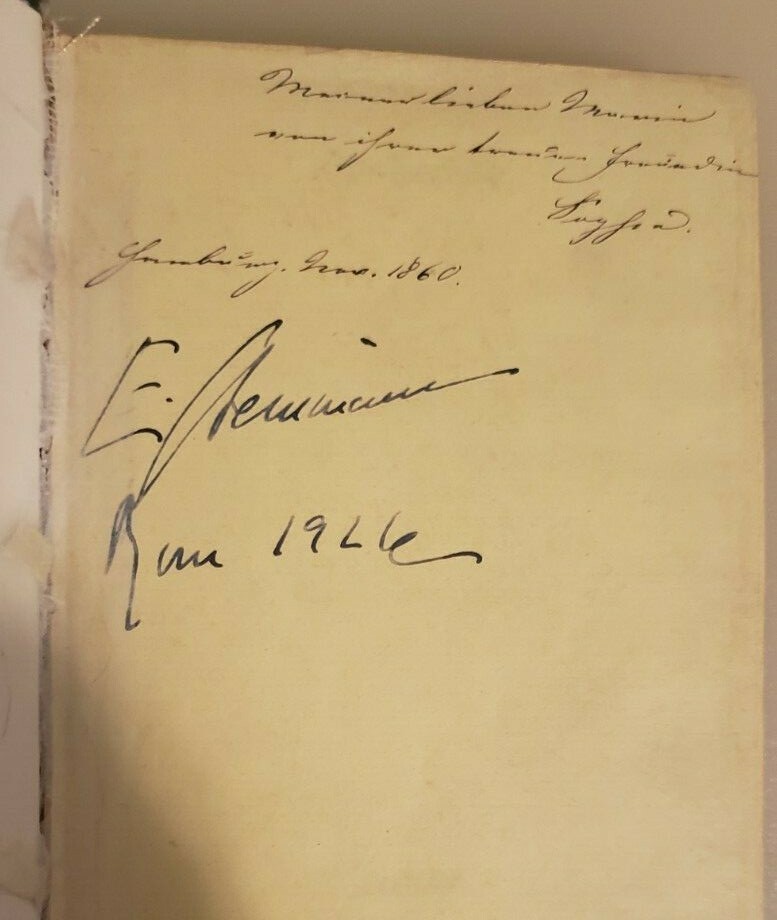 Meiner lieben Marie
von ihrer treuen Freundin
Sophie.
Hamburg. Nov. 1860.
E.
Rom 1926